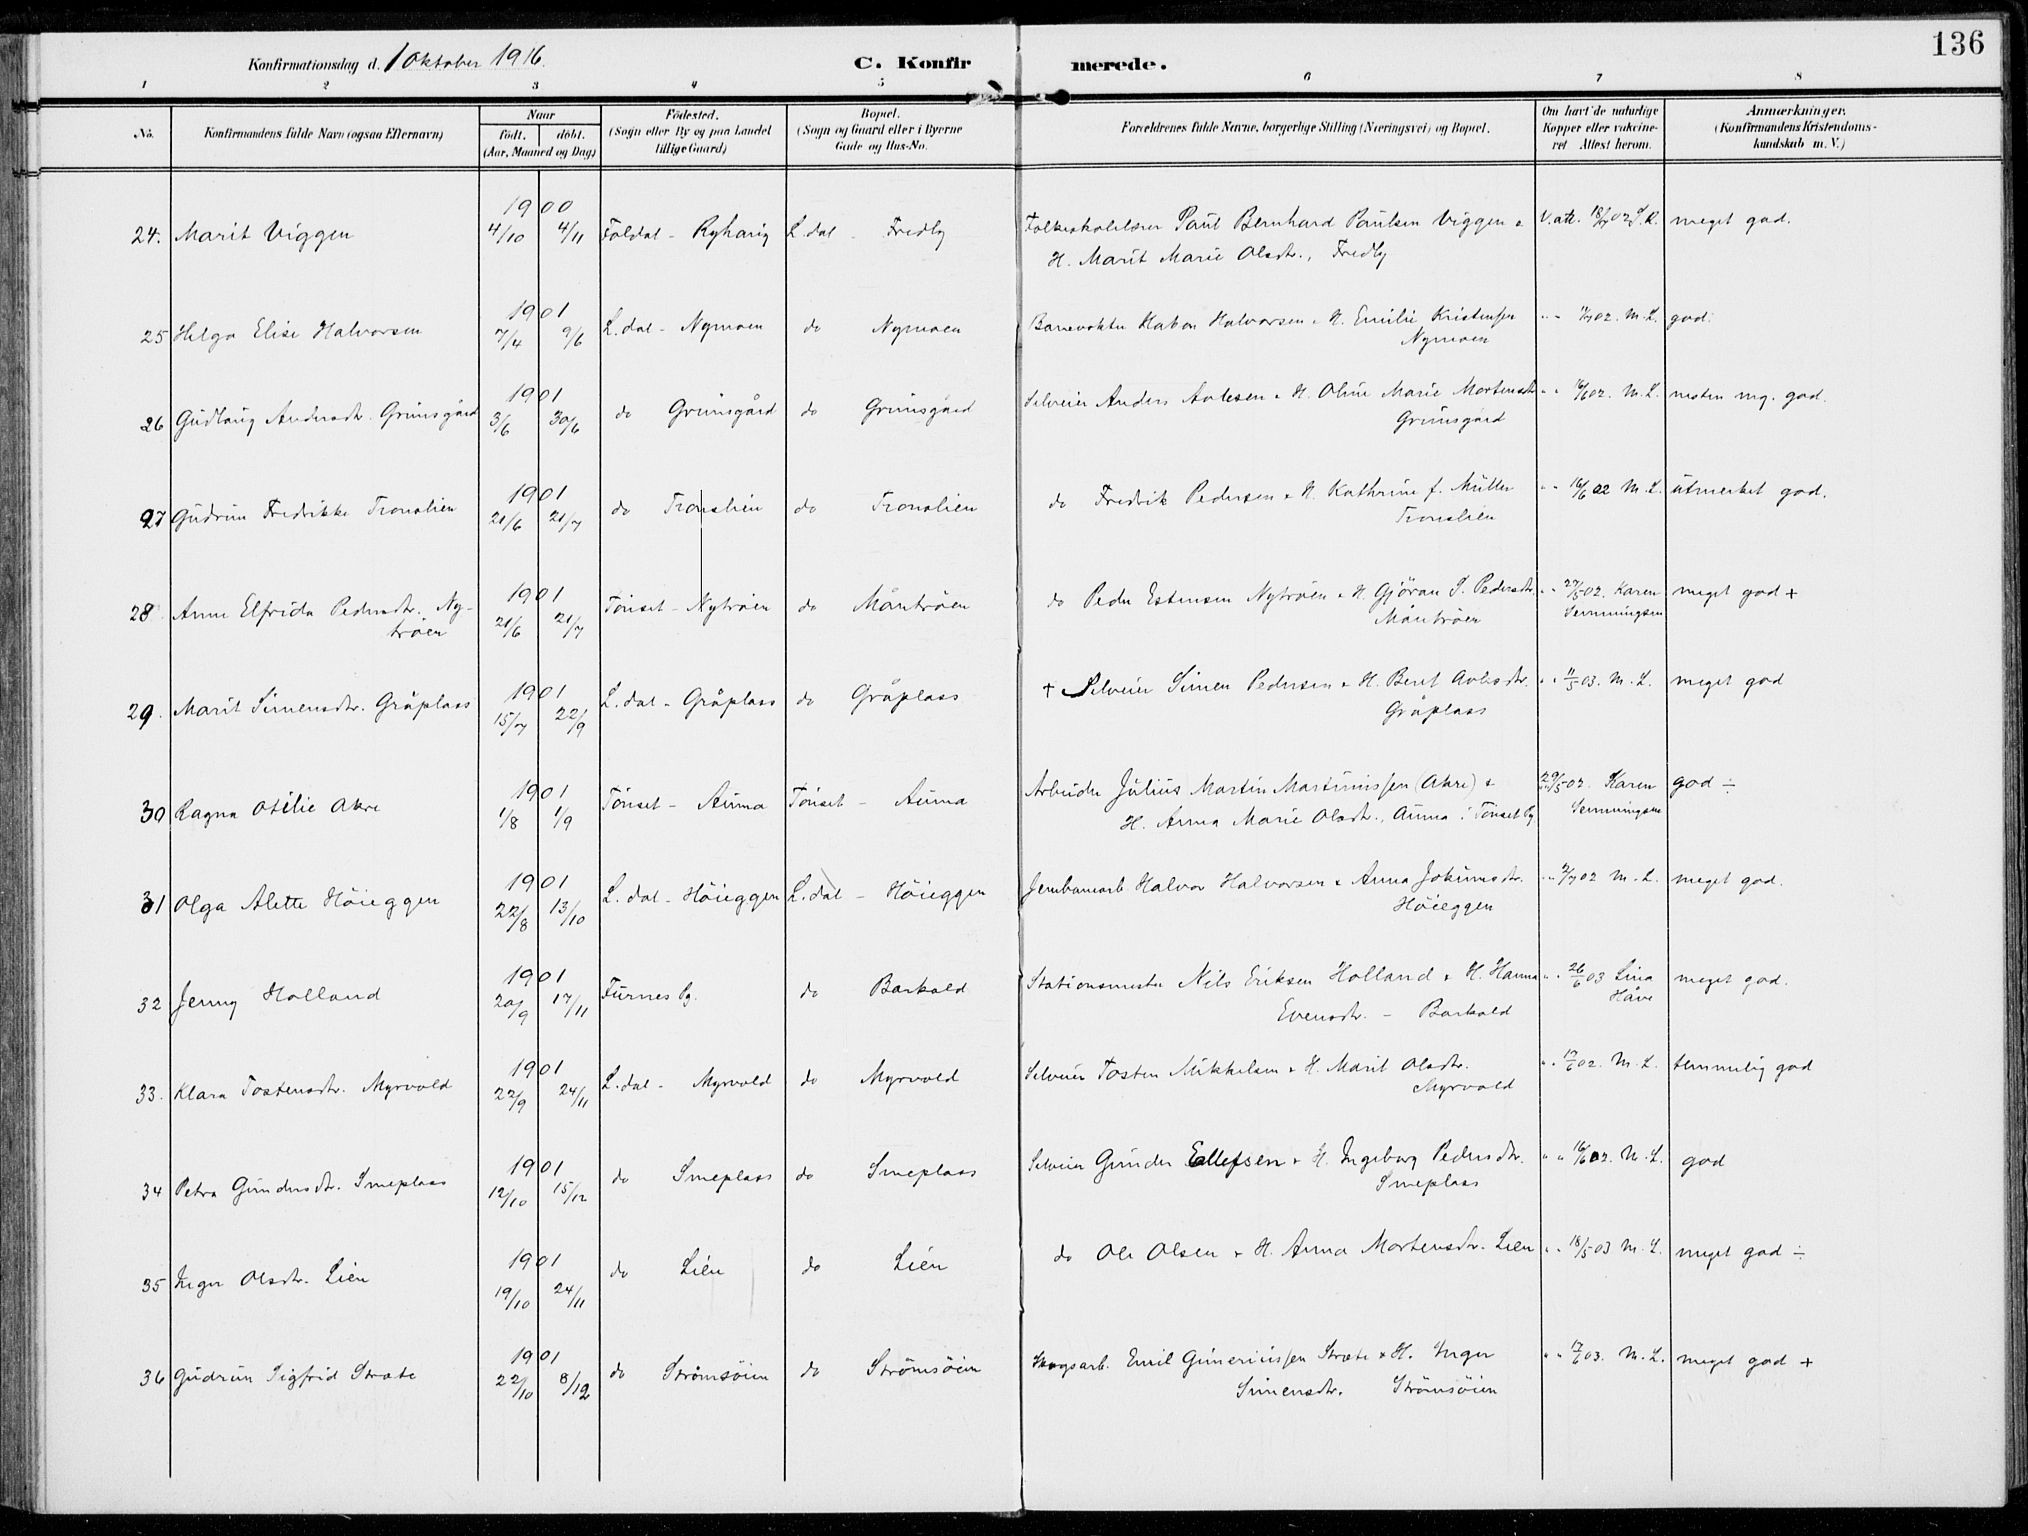 136
Konfirmationsdag d. 1 Oktober 1916.
C. Konfirmerede.
1 2 3 4 5 6 7 8
No.
Konfirmandens fulde Navn (ogsaa Efternavn)
Naar
födt. döbt.
(Aar, Maaned og Dag)
Födested.
(Sogn eller By og paa Landet
tillige Gaard)
Bopæl.
(Sogn og Gaard eller i Byerne
Gade og Hus-No.
Forældrenes fulde Navne, borgerlige Stilling (Næringsvei) og Bopæl.
Om havt de naturlige
Kopper eller vakcine-
ret Attest herom.
Anmærkninger.
(Konfirmandens Kristendoms-
kundskab m. V.)
1900
24. Marit Viggen 4/10 4/11 Foldal - Ryhaug L.dal - Fredly Folkeskolelærer Paul Bernhard Paulsen Viggen & V. att. 18/7 02 S.K. meget god.
H. Marit Marie Olsdtr., Fredly
1901
25 Helga Elise Halvorsen 7/4 9/6 L.dal - Nymoen do Nymoen Banevokter Hakon Halvorsen & H. Emilie Kristensen " " 02. M.L. god.
Nymoen
1901
26 Gudlaug Andersdtr. Grimsgård 3/6 30/6 do Grimsgård do Grimsgård Selveier Anders Avlesen & H. Oline Marie Mortensdtr " " 16/6 02. M.L. nesten mg. god.
Grimsgård
1901
27 Gudrun Fredrikke Tronslien 21/6 21/7 do Tronslien do Tronslien do Fredrik Pedersen & H. Kathrine f. Müller " " 16/6 02 M.L. utmerket god.
Tronslien
1901
28 Anne Elfrida Pedersdtr. Ny- 21/6 21/7 Tönset - Nytröen do Måntröen do Peder Estensen Nytröen & H. Gjöran S. Pedersdtr. " " 27/5 02. Karen meget god +
tröen Måntröen Semmingsen
1901
29. Marit Simensdtr. Gråplass 15/7 22/9 L.dal - Gråplass do Gråplass + Selveier Simen Pedersen & H. Beret Avlesdtr. " " 11/5 03. M.L. meget god
Gråplass
1901
30 Ragna Otilie Akre 1/8 1/9 Tönset - Auma Tönset - Auma Arbeider Julius Martin Martinussen (Akre) & 29/5 02. Karen god ÷
H. Anna Marie Olsdtr., Auma i Tönset Pg. Semmingsen
1901
31 Olga Alette Höieggen 22/8 13/10 L.dal - Höieggen L.dal - Höieggen Jernbanearb Halvor Halvorsen & Anna Jokumsdtr. " " 2/7 02 M.L. meget god.
Höieggen
1901
32 Jenny Holland 20/9 17/11 Furnes Pg. do Barkald Stationsmester Nils Eriksen Holland & H. Hanna " " 26/6 03 Lina meget god.
Evensdtr. - Barkald Håve
1901
33. Klara Tostensdtr. Myrvold 22/9 24/11 L.dal - Myrvold do Myrvold Selveier Tosten Mikkelsen & H. Marit Olsdtr. " " 17/6 02. M.L. temmelig god
Myrvold
1901
34 Petra Gundersdtr. Smeplass 12/10 15/12 do Smeplass do Smeplass Selveier Gunder Ellefsen & H. Ingeborg Pedersdtr. " " 16/6 02. M.L. god
Smeplass
1901
35 Inger Olsdtr. Lien 19/10 24/11 do Lien do Lien do Ole Olsen & H. Anna Mortensdtr. Lien " " 18/5 03 M.L. meget god ÷
1901
36 Gudrun Sigfrid Stræte 22/10 8/12 do Strömsöien do Strömsöien Skogsarb. Emil Gunerius sen Stræte & H. Inger " " 17/6 03. M.L. meget god +
Simensdtr. Strömsöien